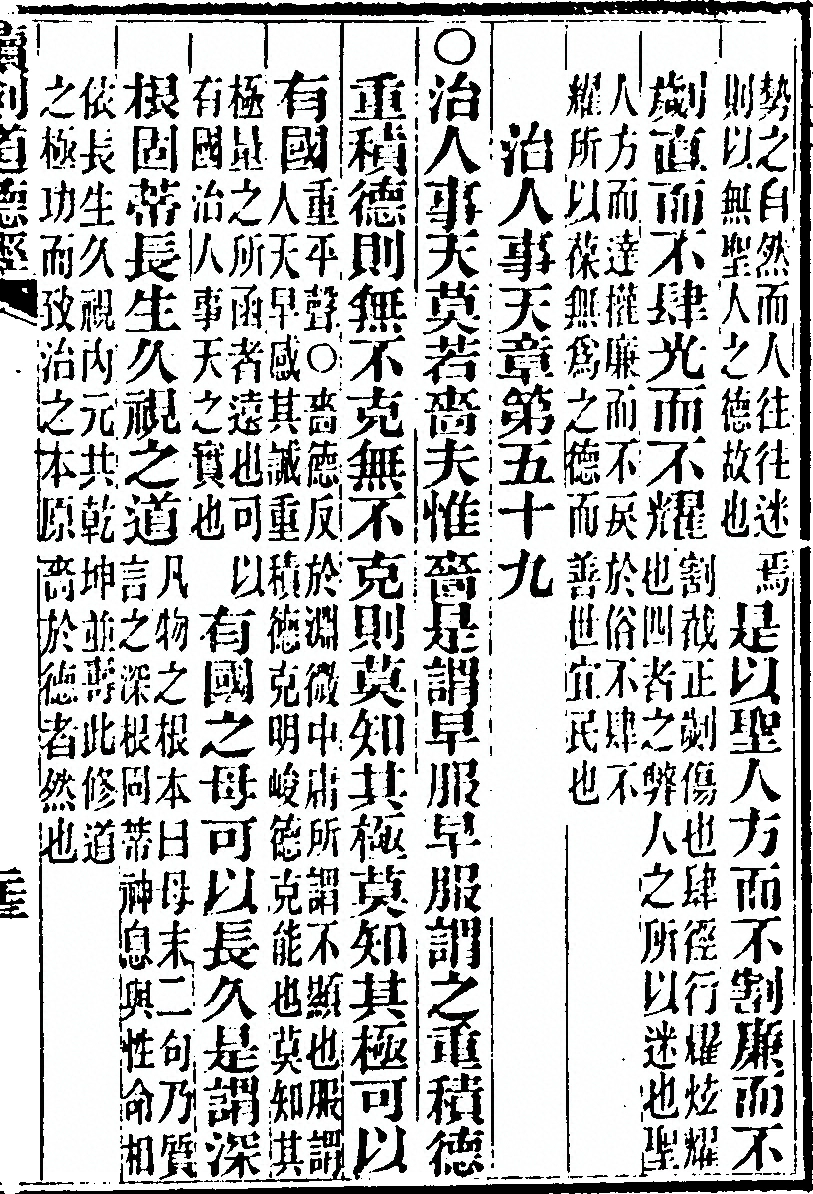 勢之自然而人往往迷焉
則以無聖人之德故也
是以聖人方而不割廉而不
劌直而不肆光而不耀
割截正劌傷也肆徑行耀炫耀
也四者之弊人之所以迷也聖
人方而達權廉而不戾於俗不肆不
耀所以葆無爲之德而善世宜民也
治人事天章第五十九
○治人事天莫若嗇夫惟嗇是謂早服早服謂之重積德
重積德則無不克無不克則莫知其極莫知其極可以
有國
重平聲○嗇德反於淵微中庸所謂不顯也服謂
人天早感其誠重積德克明峻德克能也莫知其
極量之所函者遠也可以
有國治人事天之實也
有國之母可以長久是謂深
根固蒂長生久視之道
凡物之根本曰母末二句乃質
言之深根固蒂神息與性命相
依長生久視內元共乾坤並壽此修道
之極功而致治之本原嗇於德者然也
道德經